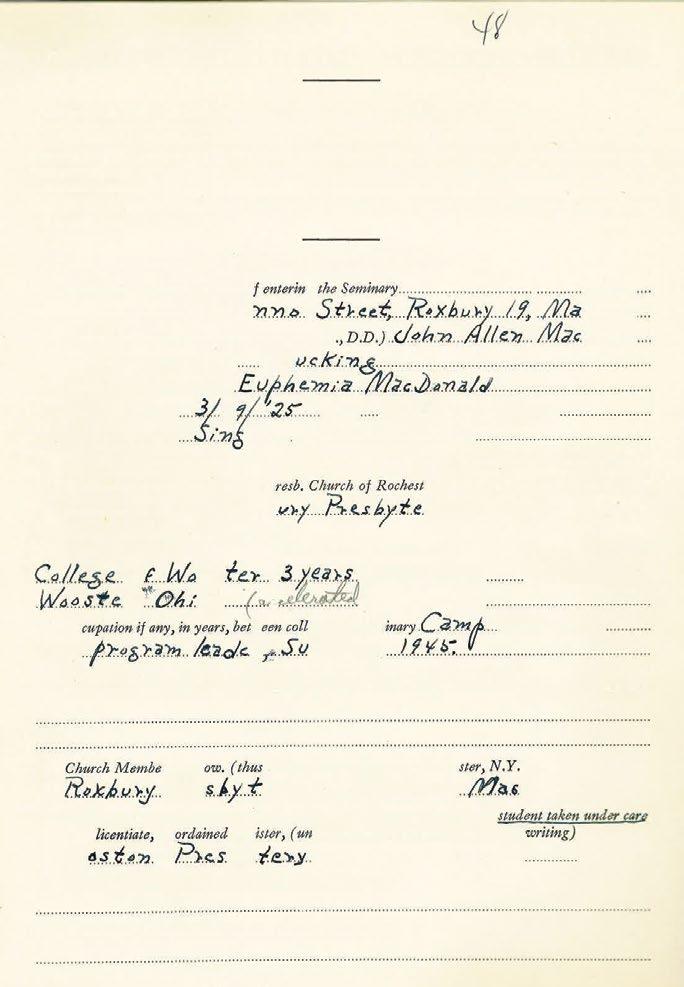 48
f enterin the Seminary
nno Street, Roxbury 19, Ma
., D.D.) John Allen Mac
ucking
Euphemia MacDonald
3/ 9/ '25
Sing
resb. Church of Rochest
ury Presbyte
College f Wo ter 3 years
Wooste Ohi (accelerated
cupation if any, in years, bet een coll inary Camp
program leade Su 1945.
Church Membe ow. (thus ster, N.Y.
Roxbury sbyt Mas
student taken under care
licentiate, ordained ister, (un writing)
oston Pres tery